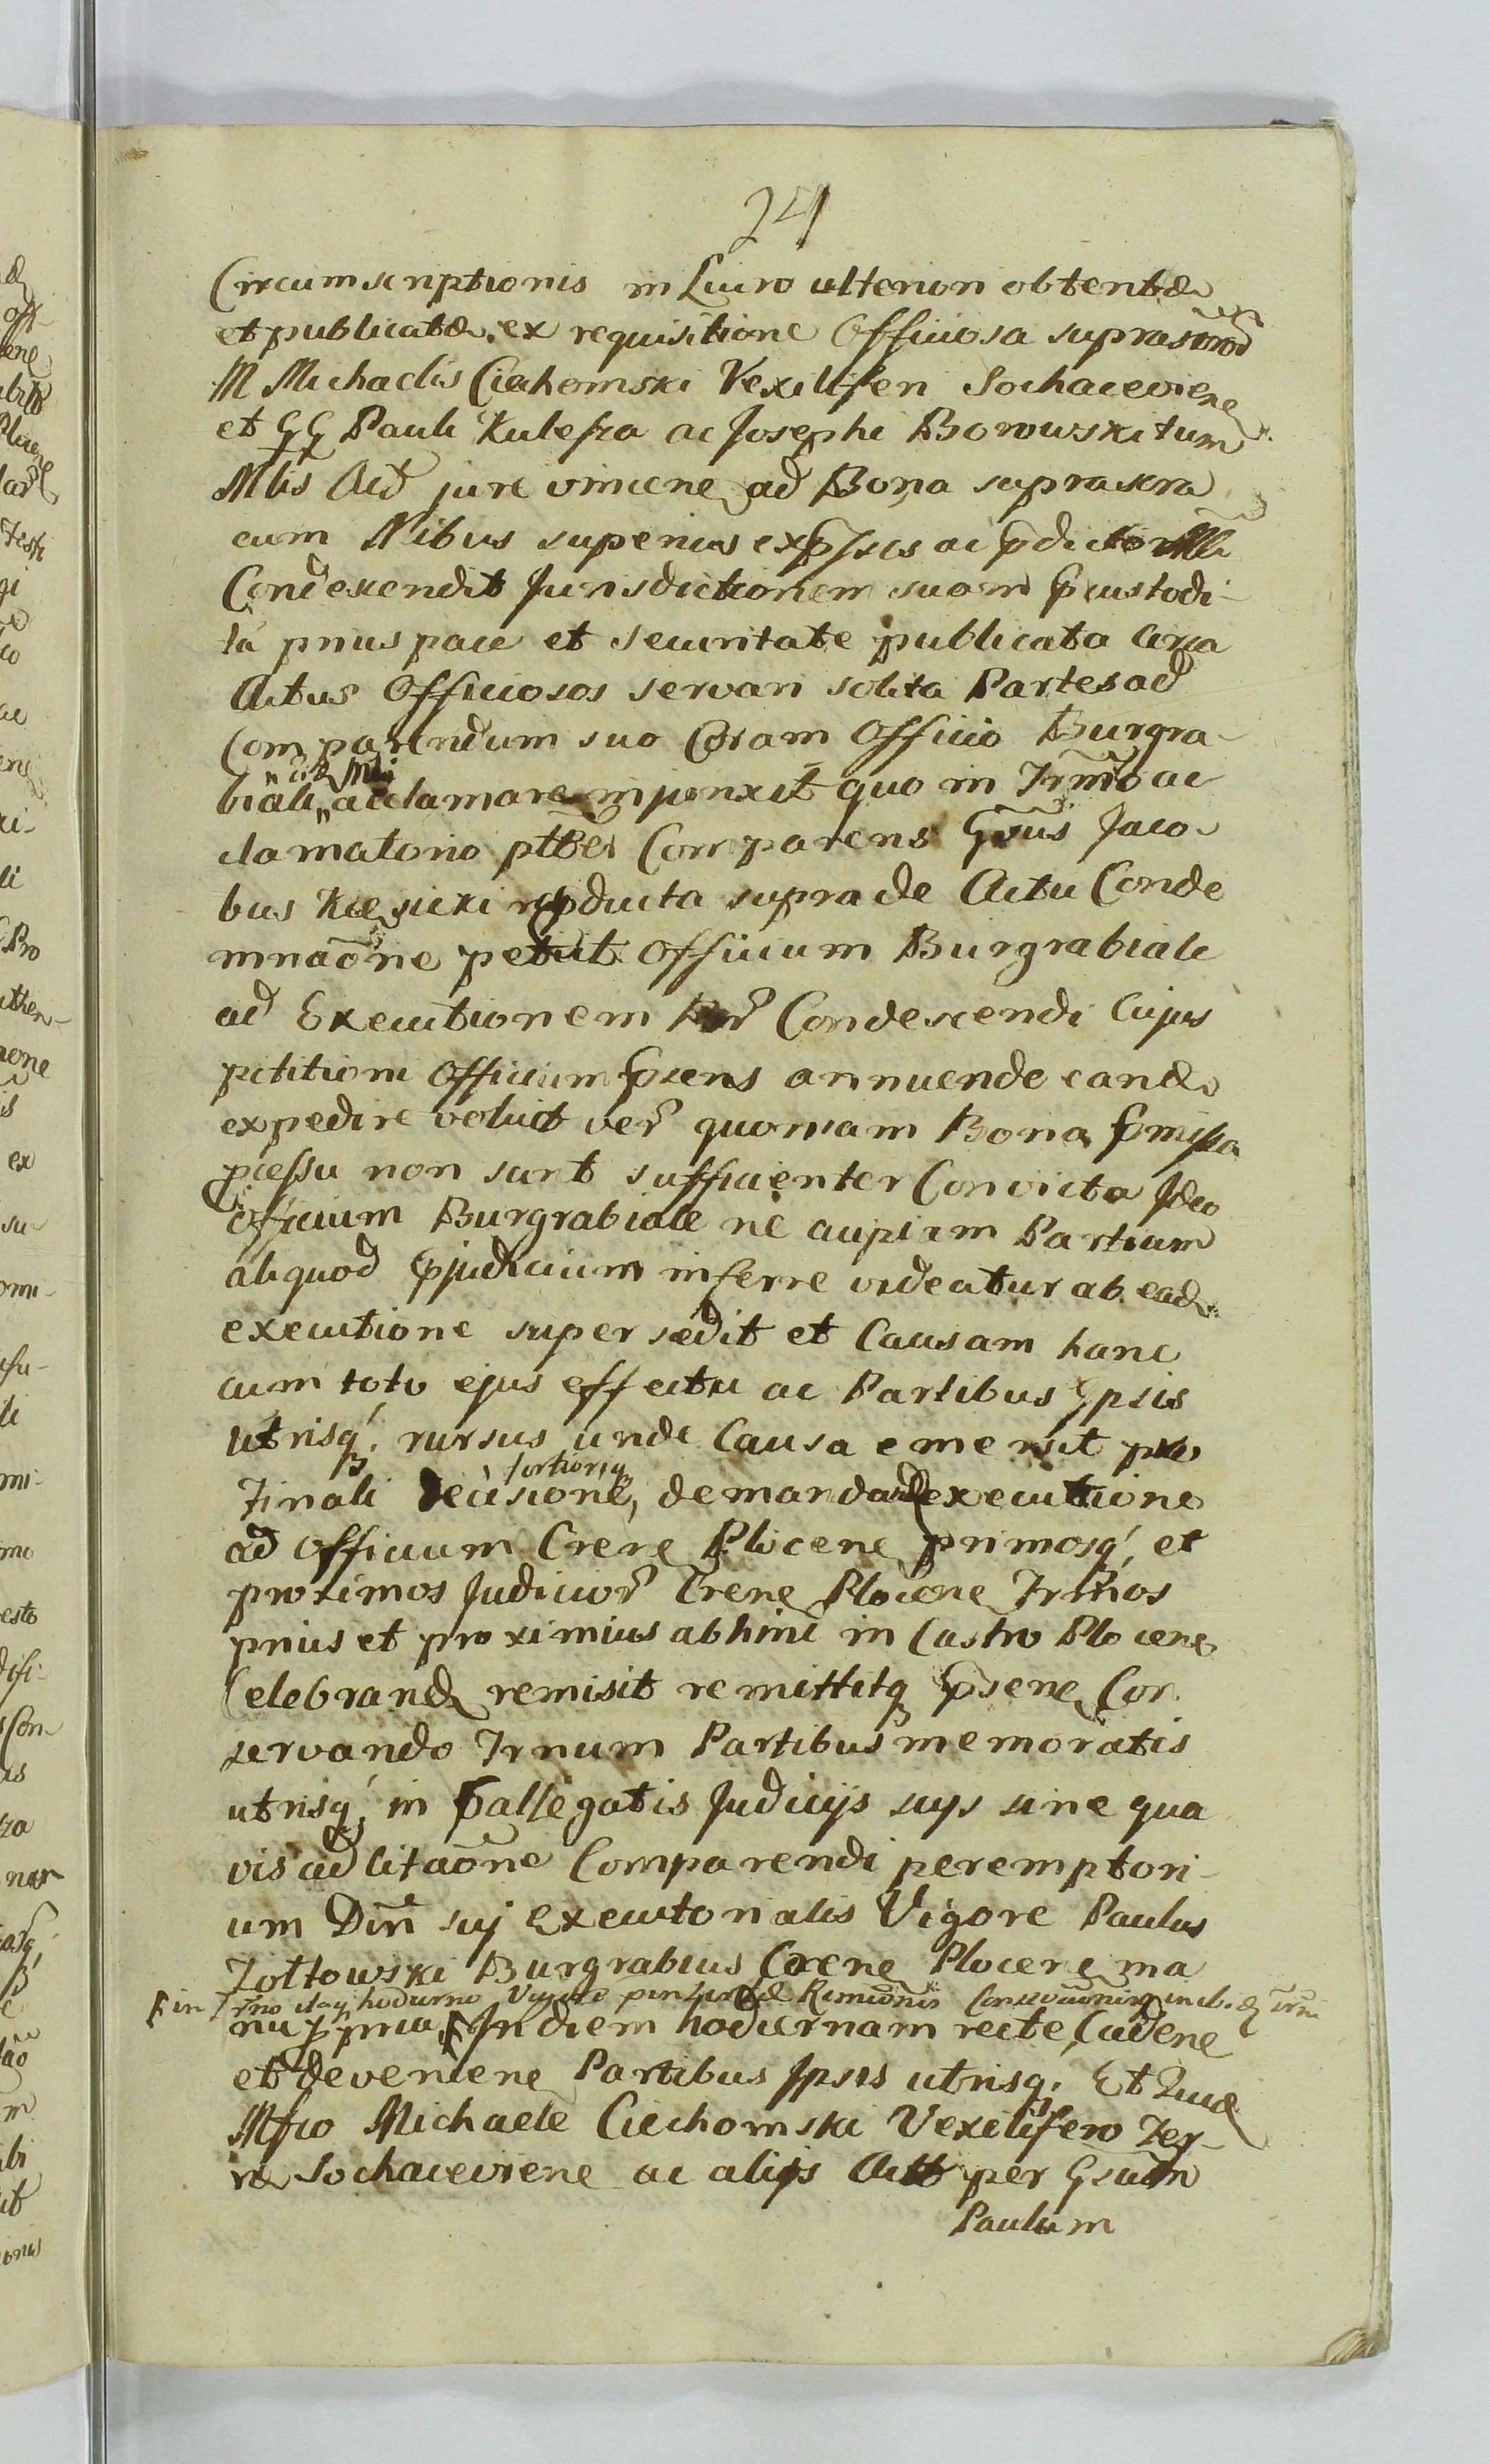 241
Circumscriptionis in Lucro ulteriori obtentæ
et publicatæ ex requisitione Officiosa supra
M Michaelis Ciechomski Vexiliferi Sochacevien
et GG Pauli Kulesza ac Josephi Borowski tum
Mlis Act jure vincen ad Bona suprascra
cum Nibus superius expssis ac pdicto
Condescendit Jurisdictionem suam pcustodi-
tá prius pace et securitate publicata circa
Actus Officiosos servari solita Partes ad
Comparendum suo Coram Officio Burgra-
biali acclamare injunxit quo in Trmo ac
clamatorio ptbr Comparens Gsus Jaco-
bus Kęsicki rpducta supra de Actu Conde
mnaone petiit Officium Burgrabiale
ad Executionem Condescendi Cujus
petitioni Officium psens annuendo eand
expedire voluit ver quoniam Bona pmissa
pcessu non sunt sufficienter Convicta Ideo
Officium Burgrabiale ne cupiam Partium
aliquod pjudicium inferre videatur ab ead
executione supersedit et Causam hanc
cum toto ejus effectu ac Partibus Ipsis
utrisq, rursus unde Causa emersit pro
Finali Decisione, fortioriq demandand executione
ad Officium Crene Plocen primosq, et
proximos Judicior Crene Plocen Trmos
prius et proximius abhinc in Castro Plocen
Celebrand remisit remittitq psene Con
servando Trnum Partibus memoratis
utrisq, in pallegatis Judicijs suys sine qua
vis ad citaone Comparendi peremptori-
um Din sui Executorialis Vigore Paulus
Zołtowski Burgrabius Crene Plocen ma
in Trno itaq hodierno Vigore Remionis
nu ppria In diem hodiernam recte Caden
et devenien Partibus Ipsis utrisq, Et
Mfco Michaele Ciechomski Vexilifero Ter-
ræ Sochacevien ac alijs Actt per Gsum
Paulum